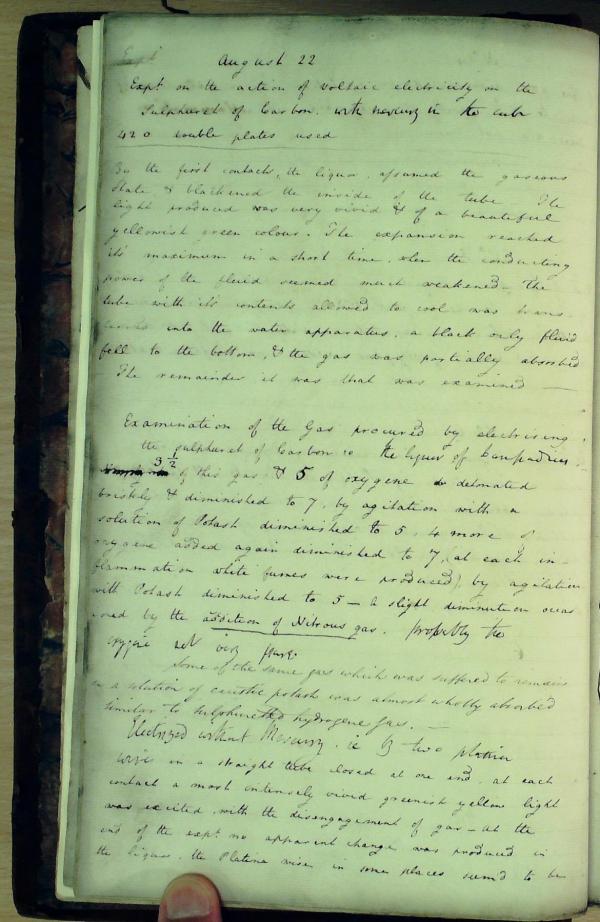 August 22
Expt on the action of Voltaic electricity on the
Sulphuret of Carbon. with mercury in the tube
420 double plates used
By the first contacts, the liquor assumed the gaseous
State & blackened the inside of the tube The
light produced was very vivid & of a beautiful
yellowish green colour. The expansion reached
its maximum in a short time, when the conducting
power of the fluid seemed much weakened – The
tube with its contents allowed to cool was trans
into the water apparatus, a black oily fluid
fell to the bottom, & the gas was partially absorbed
The remainder it was that was examined —
Examination of the Gas procured by electrising
the sulphuret of Carbon or the liquor of Lampadius.
3 1/2 of this gas & 5 of oxygene detonated
briskly & diminished to 7, by agitation with a
solution of Potash diminished to 5, 4 more of
oxygene added again diminished to 7, (at each in-
flammation white fumes were produced), by agitation
with Potash diminished to 5 — A slight diminution occas
ioned by the addition of Nitrous gas. Probably the
oxygene not very pure
Some of the same gas which was suffered to remain
in a solution of caustic potash was almost wholly absorbed
similar to sulphuretted hydrogene gas. —
Electrized without Mercury. ie by two platina
wires in a straight tube closed at one end, at each
contact a most intensely vivid greenish yellow light
was excited, with the disengagement of gas – at the
end of the expt no apparent change was produced in
the liquor, the Platina wire in some places seem'd to be